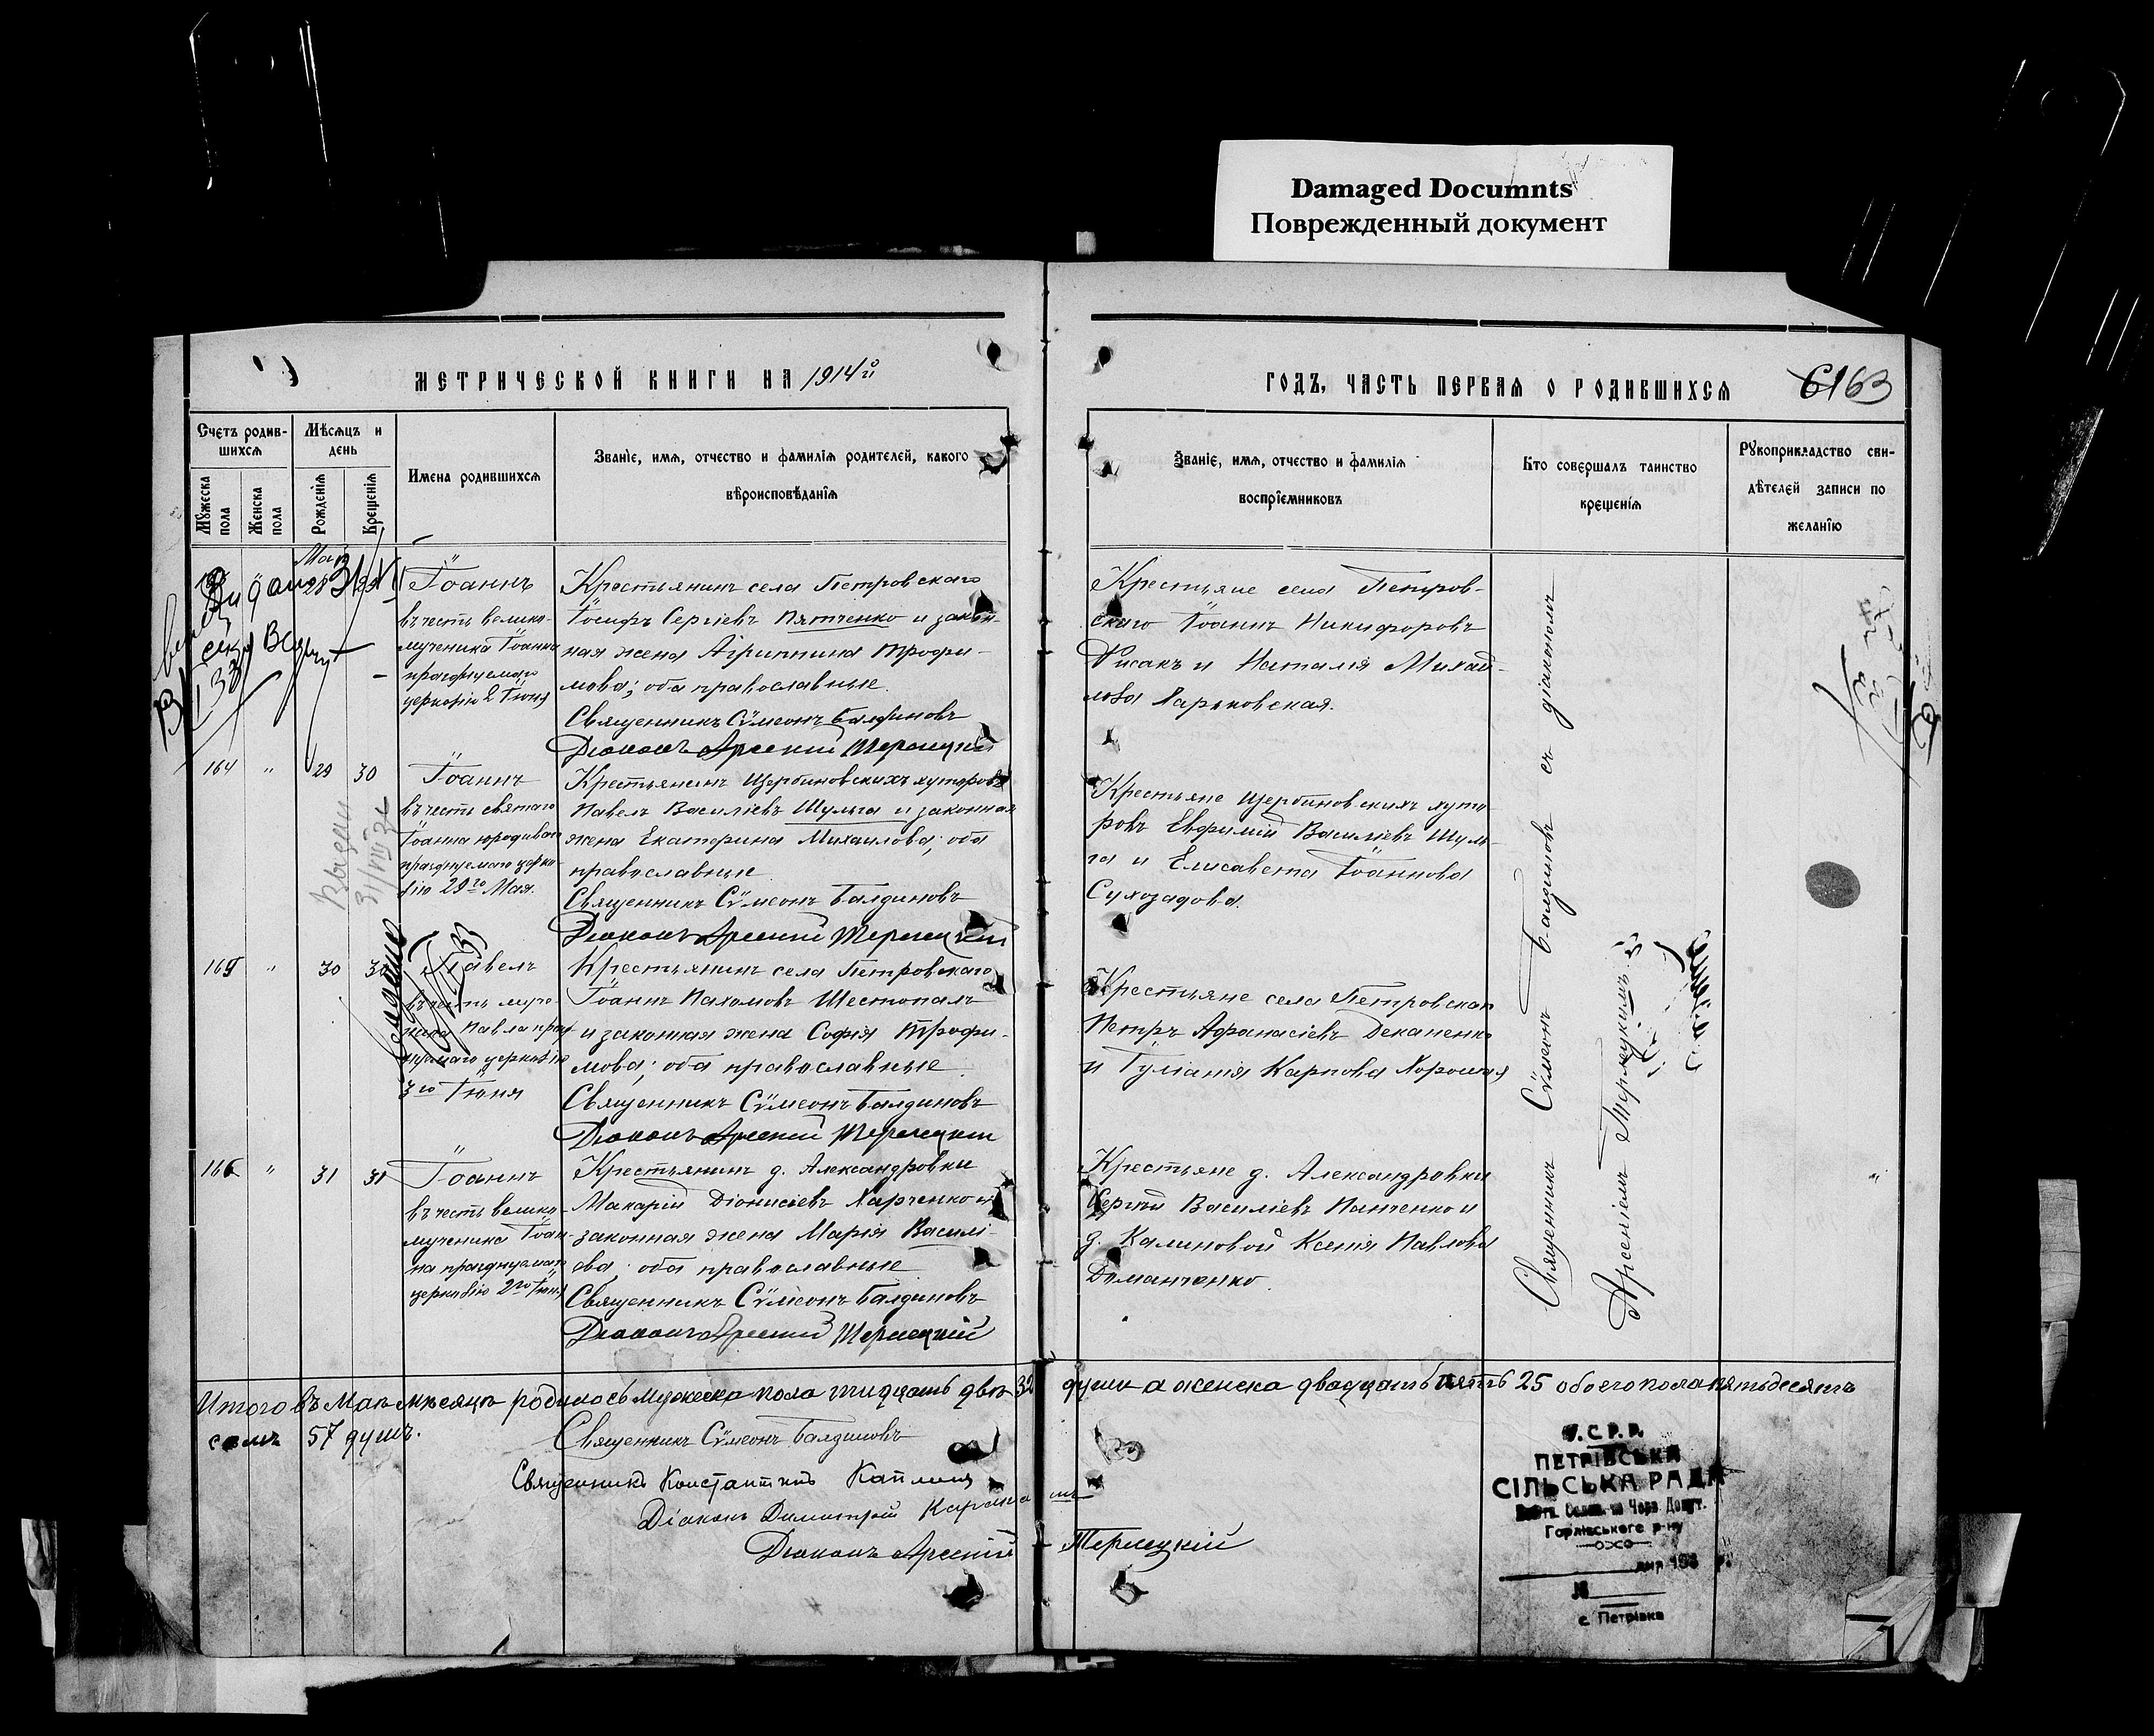 Damaged Documnts
Поврежденный документ
МЕТРИЧЕСКОЙ КНИГИ НА 1914й
ГОДЪ, ЧАСТЬ ПЕРВАЯ О РОДИВШИХСЯ
61 63
Счетъ родив-
шихся
Мѣсяцъ и
день
Мужеска
пола
Женска
пола
Рожденія
Крещенія
Имена родившихся
Званіе, имя, отчество и фамилія родителей, какого
вѣроисповѣданія
Званіе, имя, отчество и фамилія
воспріемниковъ
Кто совершалъ таинство
крещенія
Рукоприкладство сви-
дѣтелей записи по
желанію
Іоаннъ
въ честь велико-
мученика Іоанна
празднуемаго
церковію 2 Іюня
Крестьянинъ села Петровскаго
Іосифъ Сергіевъ Пятченко и закон-
ная жена Агриппина Трофи-
мова; оба православные.
Священникъ Сѵмеонъ Балдиновъ
Діаконъ Арсеній Терлецкій
Крестьяне села Петров-
скаго Іоаннъ Никифоровъ
Рисакъ и Наталія Михай-
лова Харьковская.
164 " 29 30
Іоаннъ
въ честь святаго
Іоанна юродиваго
празднуемаго церко-
вію 29го Мая.
Крестьянинъ Щербиновскихъ хуторовъ
Павелъ Василіевъ Шульга и законная
жена Екатерина Михаилова; оба
православные
Священникъ Сѵмеонъ Балдиновъ
Діаконъ Арсеній Терлецкій
Крестьяне Щербиновскихъ хуто-
ровъ Евфимій Василіевъ Шуль-
га и Елисавета Іоаннова
Сухозадова.
165 " 30 30
Павелъ
въ честь муче-
ника Павла праз-
нуемаго церковію
3го Іюня
Крестьянинъ села Петровскаго
Іоаннъ Пахомовъ Шестопалъ
и законная жена Софія Трофи-
мова; оба православные.
Священникъ Сѵмеонъ Балдиновъ
Діаконъ Арсеній Терлецкій
Крестьяне села Петровскаго
Петръ Афанасіевъ Деканенко
и Іуліанія Карпова Хорошая
166 " 31 31
Іоаннъ
въ честь велико-
мученика Іоан-
на празднуемаго
церковію 2го Іюня
Крестьянинъ д. Александровки
Макарій Діонисіевъ Харченко и
законная жена Марія Василі-
ева; оба православные
Священникъ Сѵмеонъ Балдиновъ
Діаконъ Арсеній Терлецкій
Крестьяне д. Александровки
Сергій Василіевъ Панченко и
д. Калиновой Ксенія Павлова
Доманченко.
Священникъ Сѵмеонъ Балдиновъ съ діакономъ
Арсеніемъ Терлецкимъ
Выдан
31/VII 32
Итого въ Маѣ мѣсяцѣ родилось мужеска пола тридцать двѣ 32 души а женска двадцать пять 25 обоего пола пятьдесятъ
семь 57 душъ.
Священникъ Сѵмеонъ Балдиновъ
Священникъ Константинъ Каплинъ
Діаконъ Димитрій
Діаконъ Арсеній Терлецкій
У.С.Р.Р.
ПЕТРІВСЬКА
СІЛЬСЬКА РАДА
Горлівського р-ну
№
с. Петрівка